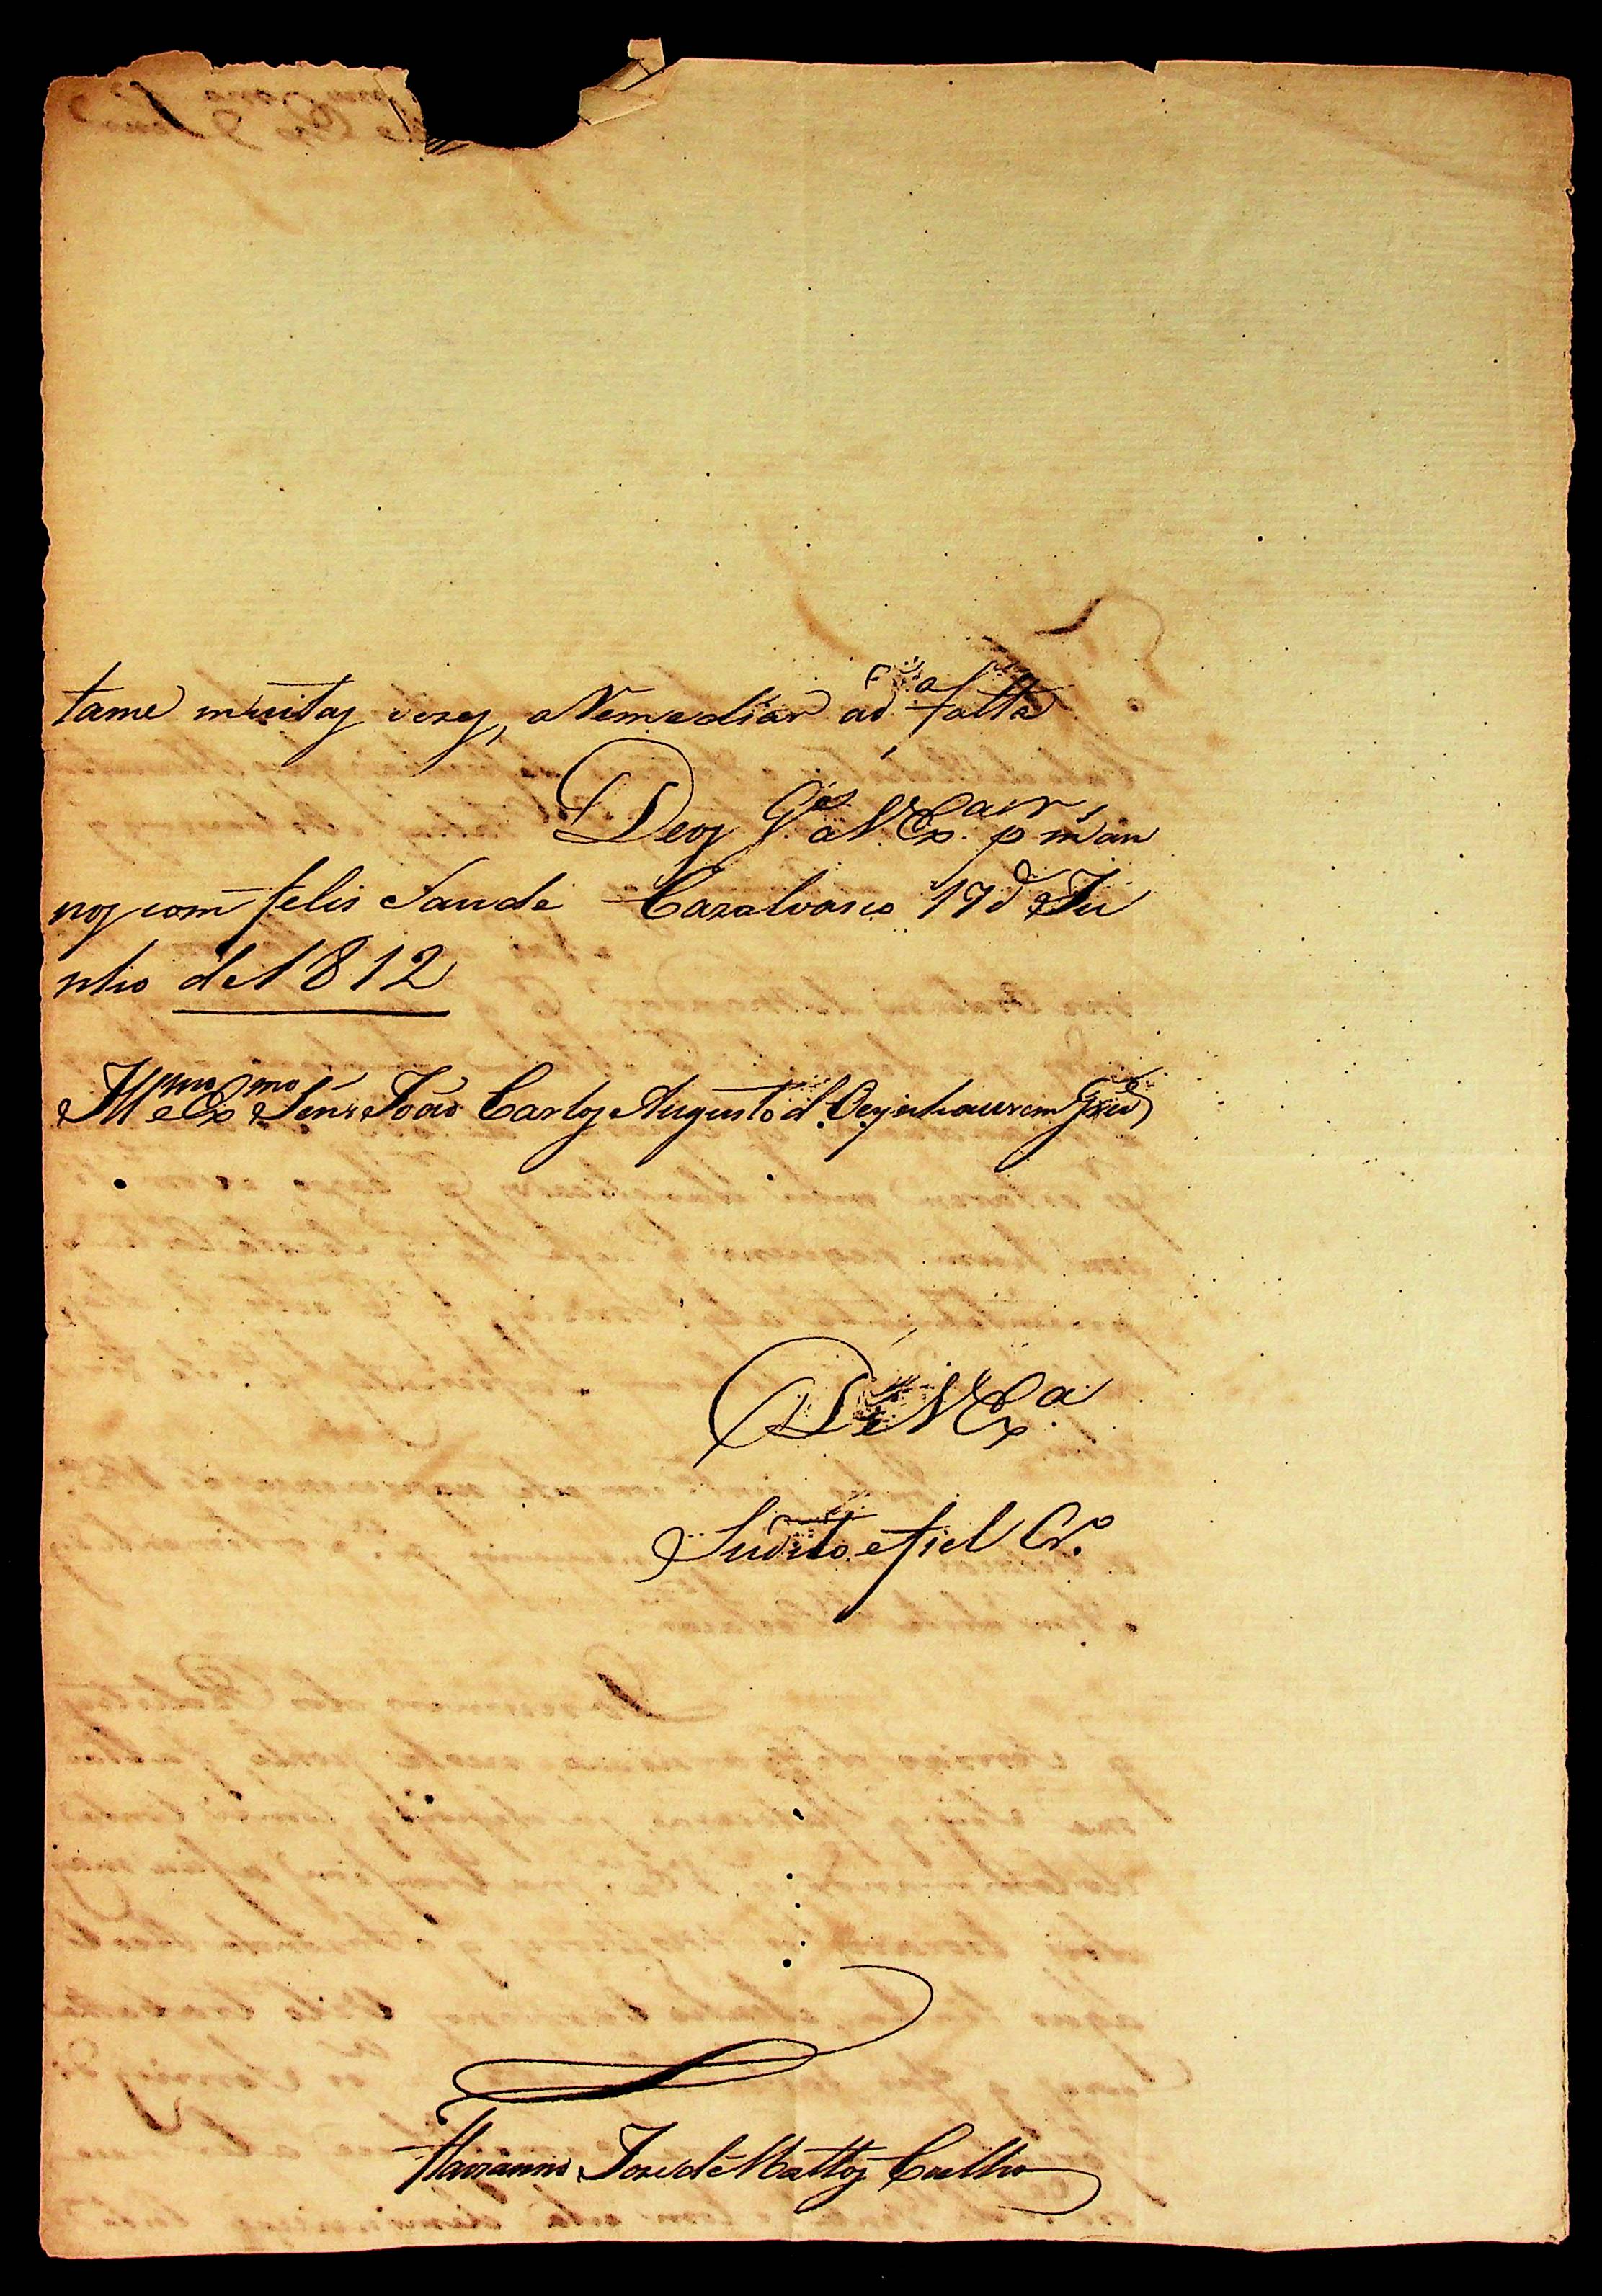 tame muitas vezes, a Remediar ad.ª falta
Deos G.e a V. Ex.ª p.r m.s an
nos com felis Saude Cazalvasco 17 d Ju
nho de 1812
Ill.mo e Ex.mo Senr. João Carlos Augusto d' Oeynhausem
De V Ex.ª
Sudito e fiel Cr.º
Marianno Joze de Mattos Coelho